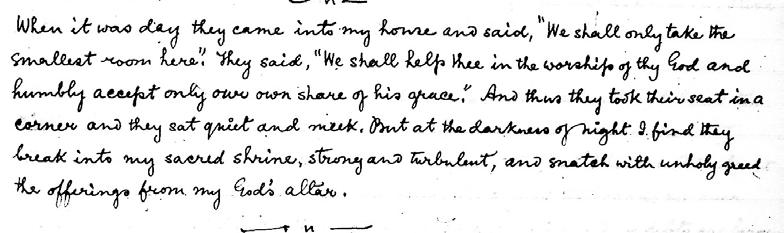 When it was day they came into my house and said, "We shall only take the
smallest room here". They said, "We shall help thee in the worship of thy God and
humbly accept only our own share of his grace." And thus they took their seat in a
corner and they sat quiet and meek. But at the darkness of night I find they
break into my sacred shrine, strong and turbulent, and snatch with unholy greed
the offerings from my God's altar.